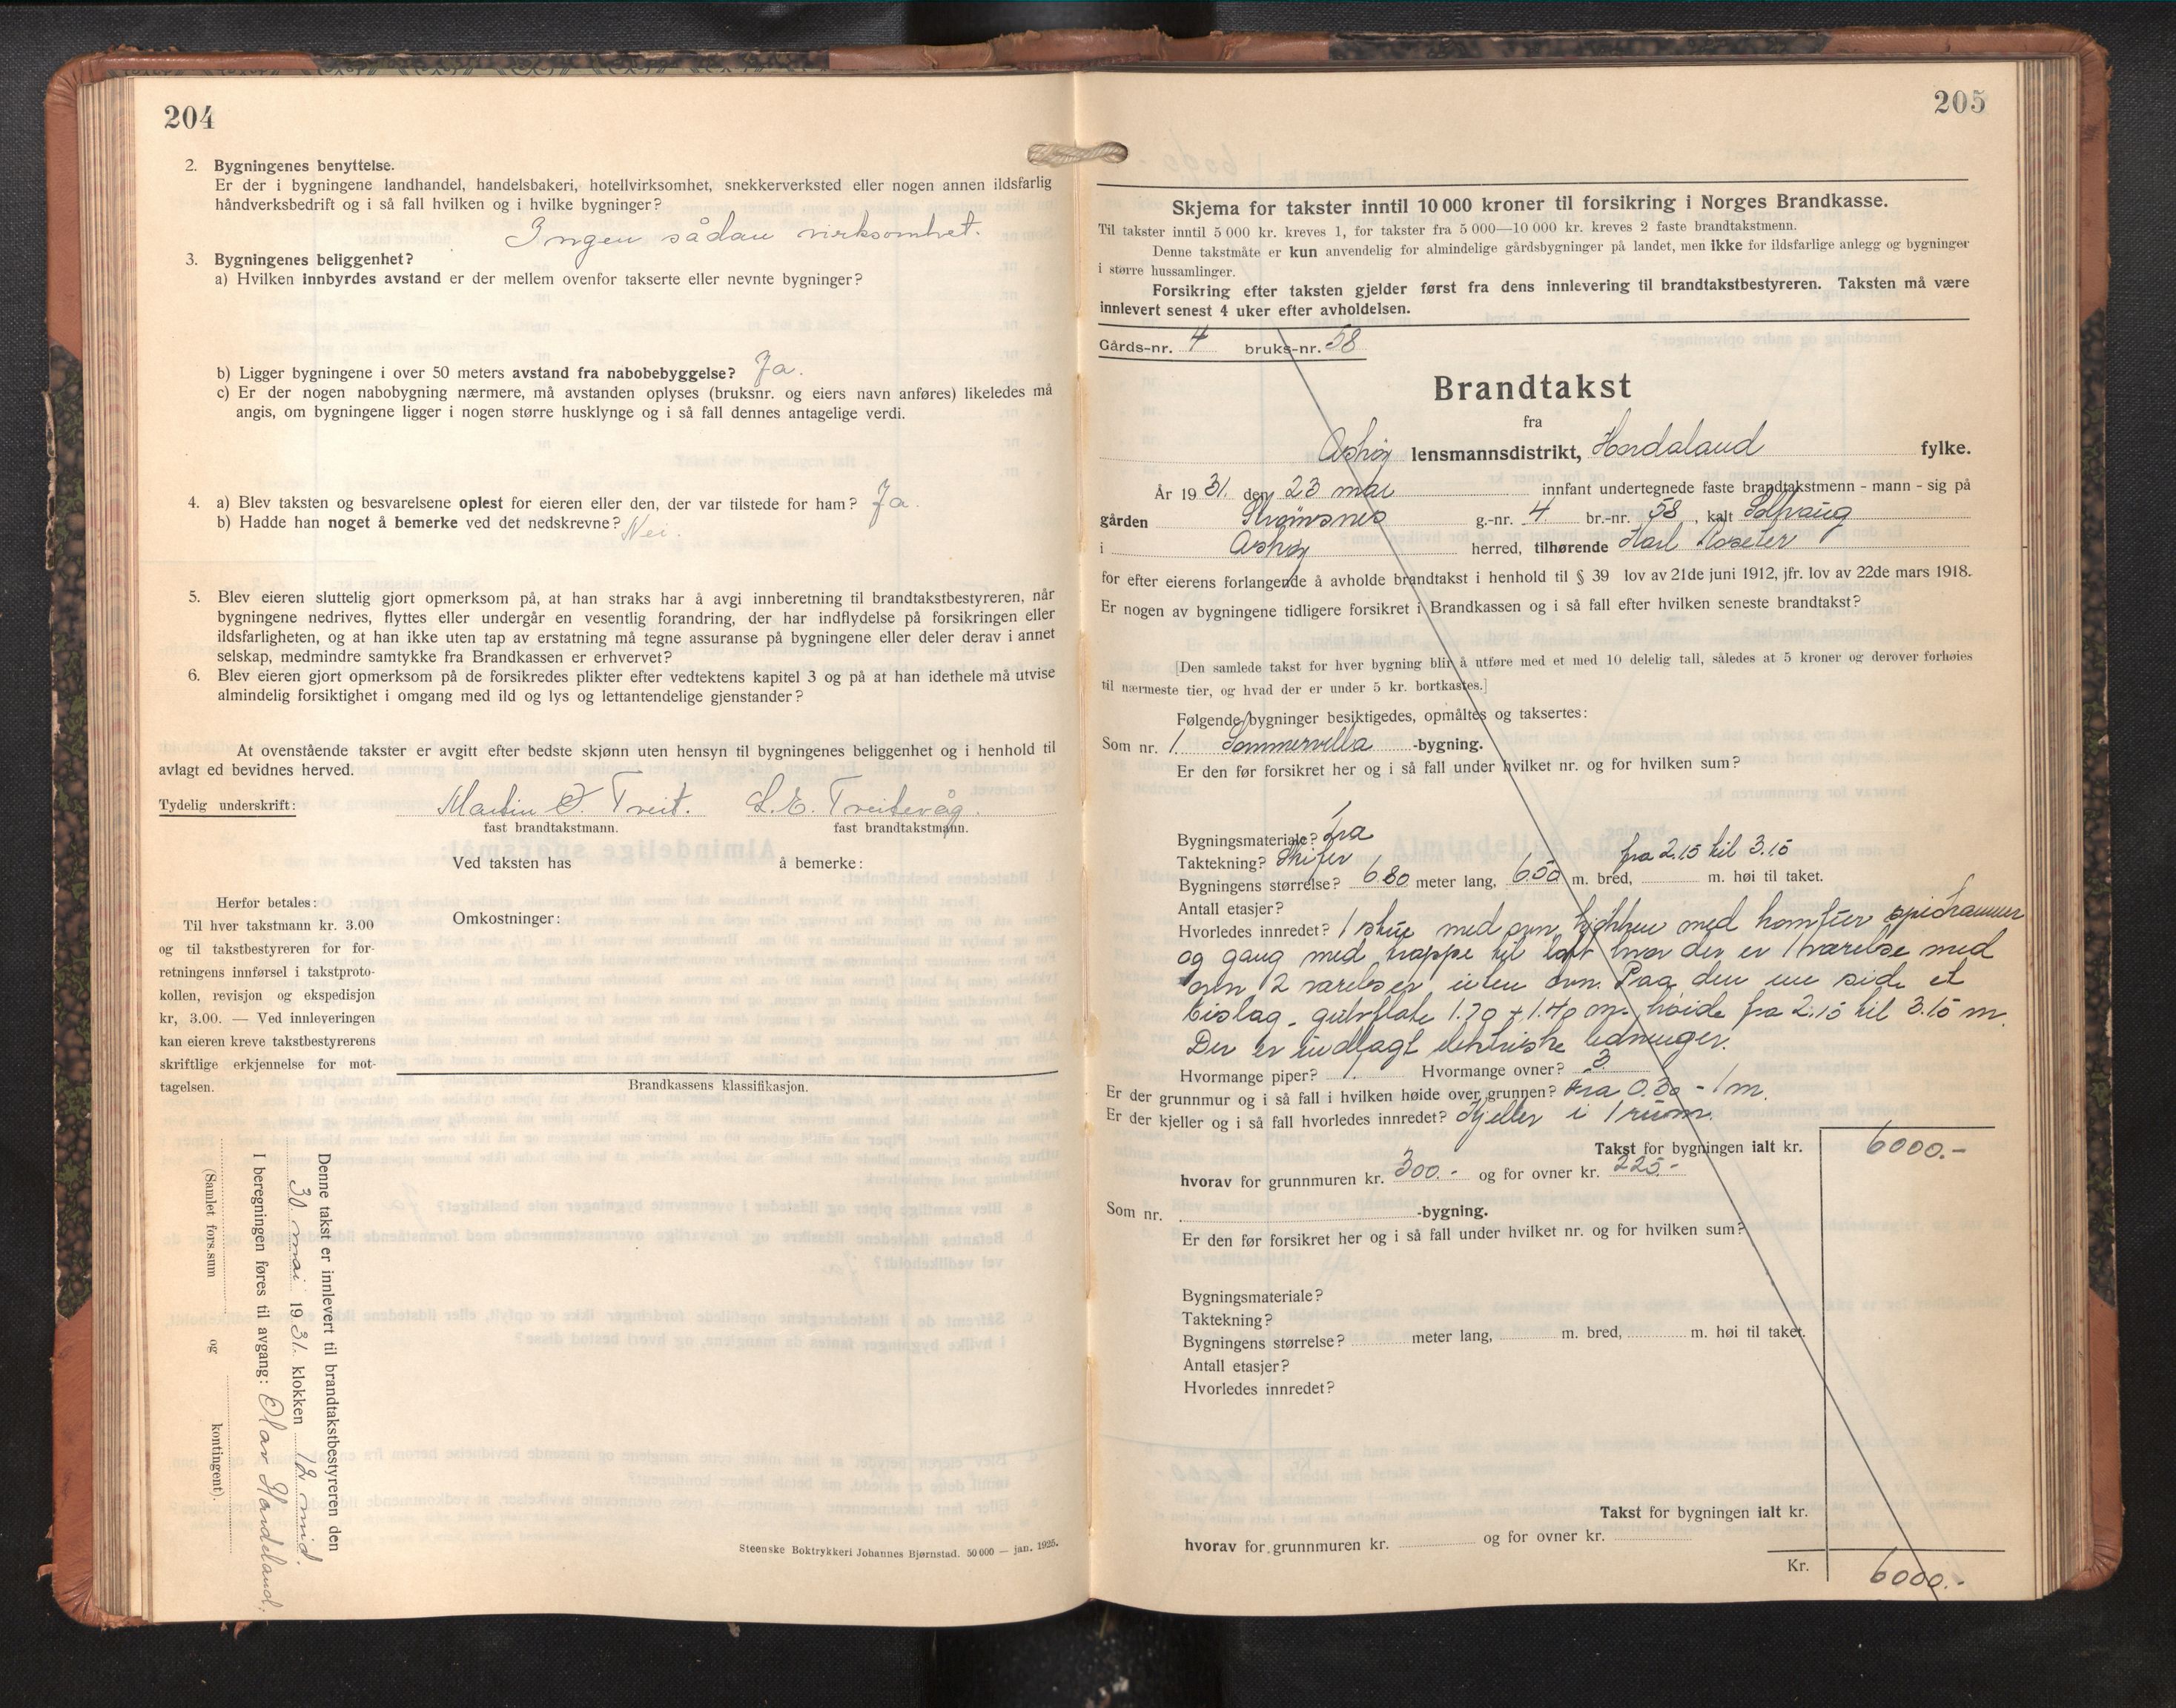 204
2. Bygningenes benyttelse.
Er der i bygningene landhandel, handelsbakeri, hotellvirksomhet, snekkerverksted eller nogen annen ildsfarlig
håndverksbedrift og i så fall hvilken og i hvilke bygninger?
Ingen sådan virksomhet.
3. Bygningenes beliggenhet?
a) Hvilken innbyrdes avstand er der mellem ovenfor takserte eller nevnte bygninger?
b) Ligger bygningene i over 50 meters avstand fra nabobebyggelse? Ja.
c) Er der nogen nabobygning nærmere, må avstanden oplyses (bruksnr. og eiers navn anføres) likeledes må
angis, om bygningene ligger i nogen større husklynge og i så fall dennes antagelige verdi.
4. a) Blev taksten og besvarelsene oplest for eieren eller den, der var tilstede for ham? Ja.
b) Hadde han noget å bemerke ved det nedskrevne? Nei.
5. Blev eieren sluttelig gjort opmerksom på, at han straks har å avgi innberetning til brandtakstbestyreren, når
bygningene nedrives, flyttes eller undergår en vesentlig forandring, der har indflydelse på forsikringen eller
ildsfarligheten, og at han ikke uten tap av erstatning må tegne assuranse på bygningene eller deler derav i annet
selskap, medmindre samtykke fra Brandkassen er erhvervet?
6. Blev eieren gjort opmerksom på de forsikredes plikter efter vedtektens kapitel 3 og på at han idethele må utvise
almindelig forsiktighet i omgang med ild og lys og lettantendelige gjenstander?
At ovenstående takster er avgitt efter bedste skjønn uten hensyn til bygningenes beliggenhet og i henhold til
avlagt ed bevidnes herved.
Tydelig underskrift: Martin O. Tveit. L. E. Tveitevåg.
fast brandtakstmann. fast brandtakstmann.
Ved taksten has å bemerke:
Herfor betales:
Til hver takstmann kr. 3.00
og til takstbestyreren for for-
retningens innførsel i takstproto-
kollen, revisjon og ekspedisjon
kr, 3.00. — Ved innleveringen
kan eieren kreve takstbestyrerens
skriftlige erkjennelse for mot-
tagelsen.
Omkostninger:
Brandkassens klassifikasjon.
Denne takst er innlevert til brandtakstbestyreren den
30 mai 1931. klokken 12 mid.
I beregningen føres til avgang: Olav Handeland.
(Samlet fors.sum og kontingent).
Steenske Boktrykkeri Johannes Bjørnstad. 50 000 — jan. 1925.
205
Skjema for takster inntil 10 000 kroner til forsikring i Norges Brandkasse.
Til takster inntil 5 000 kr. kreves 1, for takster fra 5 000—10 000 kr. kreves 2 faste brandtakstmenn.
Denne takstmåte er kun anvendelig for almindelige gårdsbygninger på landet, men ikke for ildsfarlige anlegg og bygninger
i større hussamlinger.
Forsikring efter taksten gjelder først fra dens innlevering til brandtakstbestyreren. Taksten må være
innlevert senest 4 uker efter avholdelsen.
Gårds-nr. 4 bruks-nr. 58
Brandtakst
fra
Askøy lensmannsdistrikt, Hordaland fylke.
År 1931. den 23 mai innfant undertegnede faste brandtakstmenn - mann - sig på
gården Strømsnes g.-nr. 4. br.-nr. 58, kalt Solhaug
i Askøy herred, tilhørende Karl Roseter
for efter eierens forlangende å avholde brandtakst i henhold til § 39 lov av 21de juni 1912, jfr. lov av 22de mars 1918.
Er nogen av bygningene tidligere forsikret i Brandkassen og i så fall efter hvilken seneste brandtakst?
[Den samlede takst for hver bygning blir å utføre med et med 10 delelig tall, således at 5 kroner og derover forhøies
til nærmeste tier, og hvad der er under 5 kr. bortkastes.]
Følgende bygninger besiktigedes, opmåltes og taksertes:
Som nr. 1. Sommervilla -bygning.
Er den før forsikret her og i så fall under hvilket nr. og for hvilken sum?
Bygningsmateriale? Tra
Taktekning? Skifer fra 2.15 til 3.15
Bygningens størrelse? 6.80 meter lang, 6.50 m. bred, m. høi til taket.
Antall etasjer?
Hvorledes innredet? 1 stue med ovn, kjøkken med komfur spiskammer
og gang med trappe til loft hvor der er 1 værelse med
ovn 2 værelser uten ovn. Paa den ene side et
bislag - gulvflate 1.70 x 1.40 m. høide fra 2.15 til 3.15 m.
Der er indlagt elektriske ledninger.
Hvormange piper? 1. Hvormange ovner? 3
Er der grunnmur og i så fall i hvilken høide over grunnen? Fra 0.30 - 1 m.
Er der kjeller og i så fall hvorledes innredet? Kjeller i 1 rum.
Takst for bygningen ialt kr. 6000.-
hvorav for grunnmuren kr. 300.- og for ovner kr. 225.-
Som nr. -bygning.
Er den før forsikret her og i så fall under hvilket nr. og for hvilken sum?
Bygningsmateriale?
Taktekning?
Bygningens størrelse? meter lang, m. bred, m. høi til taket.
Antall etasjer?
Hvorledes innredet?
Takst for bygningen ialt kr.
hvorav for grunnmuren kr. og for ovner kr.
Kr. 6000.-